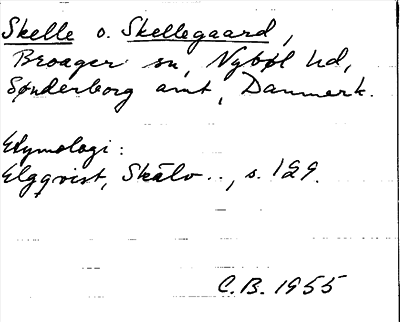 Skelle o. Skellegaard,
Broager sn, Nybøl hd,
Sønderborg amt, Danmark.
Etymologi:
Elgqvist, Skälv.., s. 129.
C.B. 1955